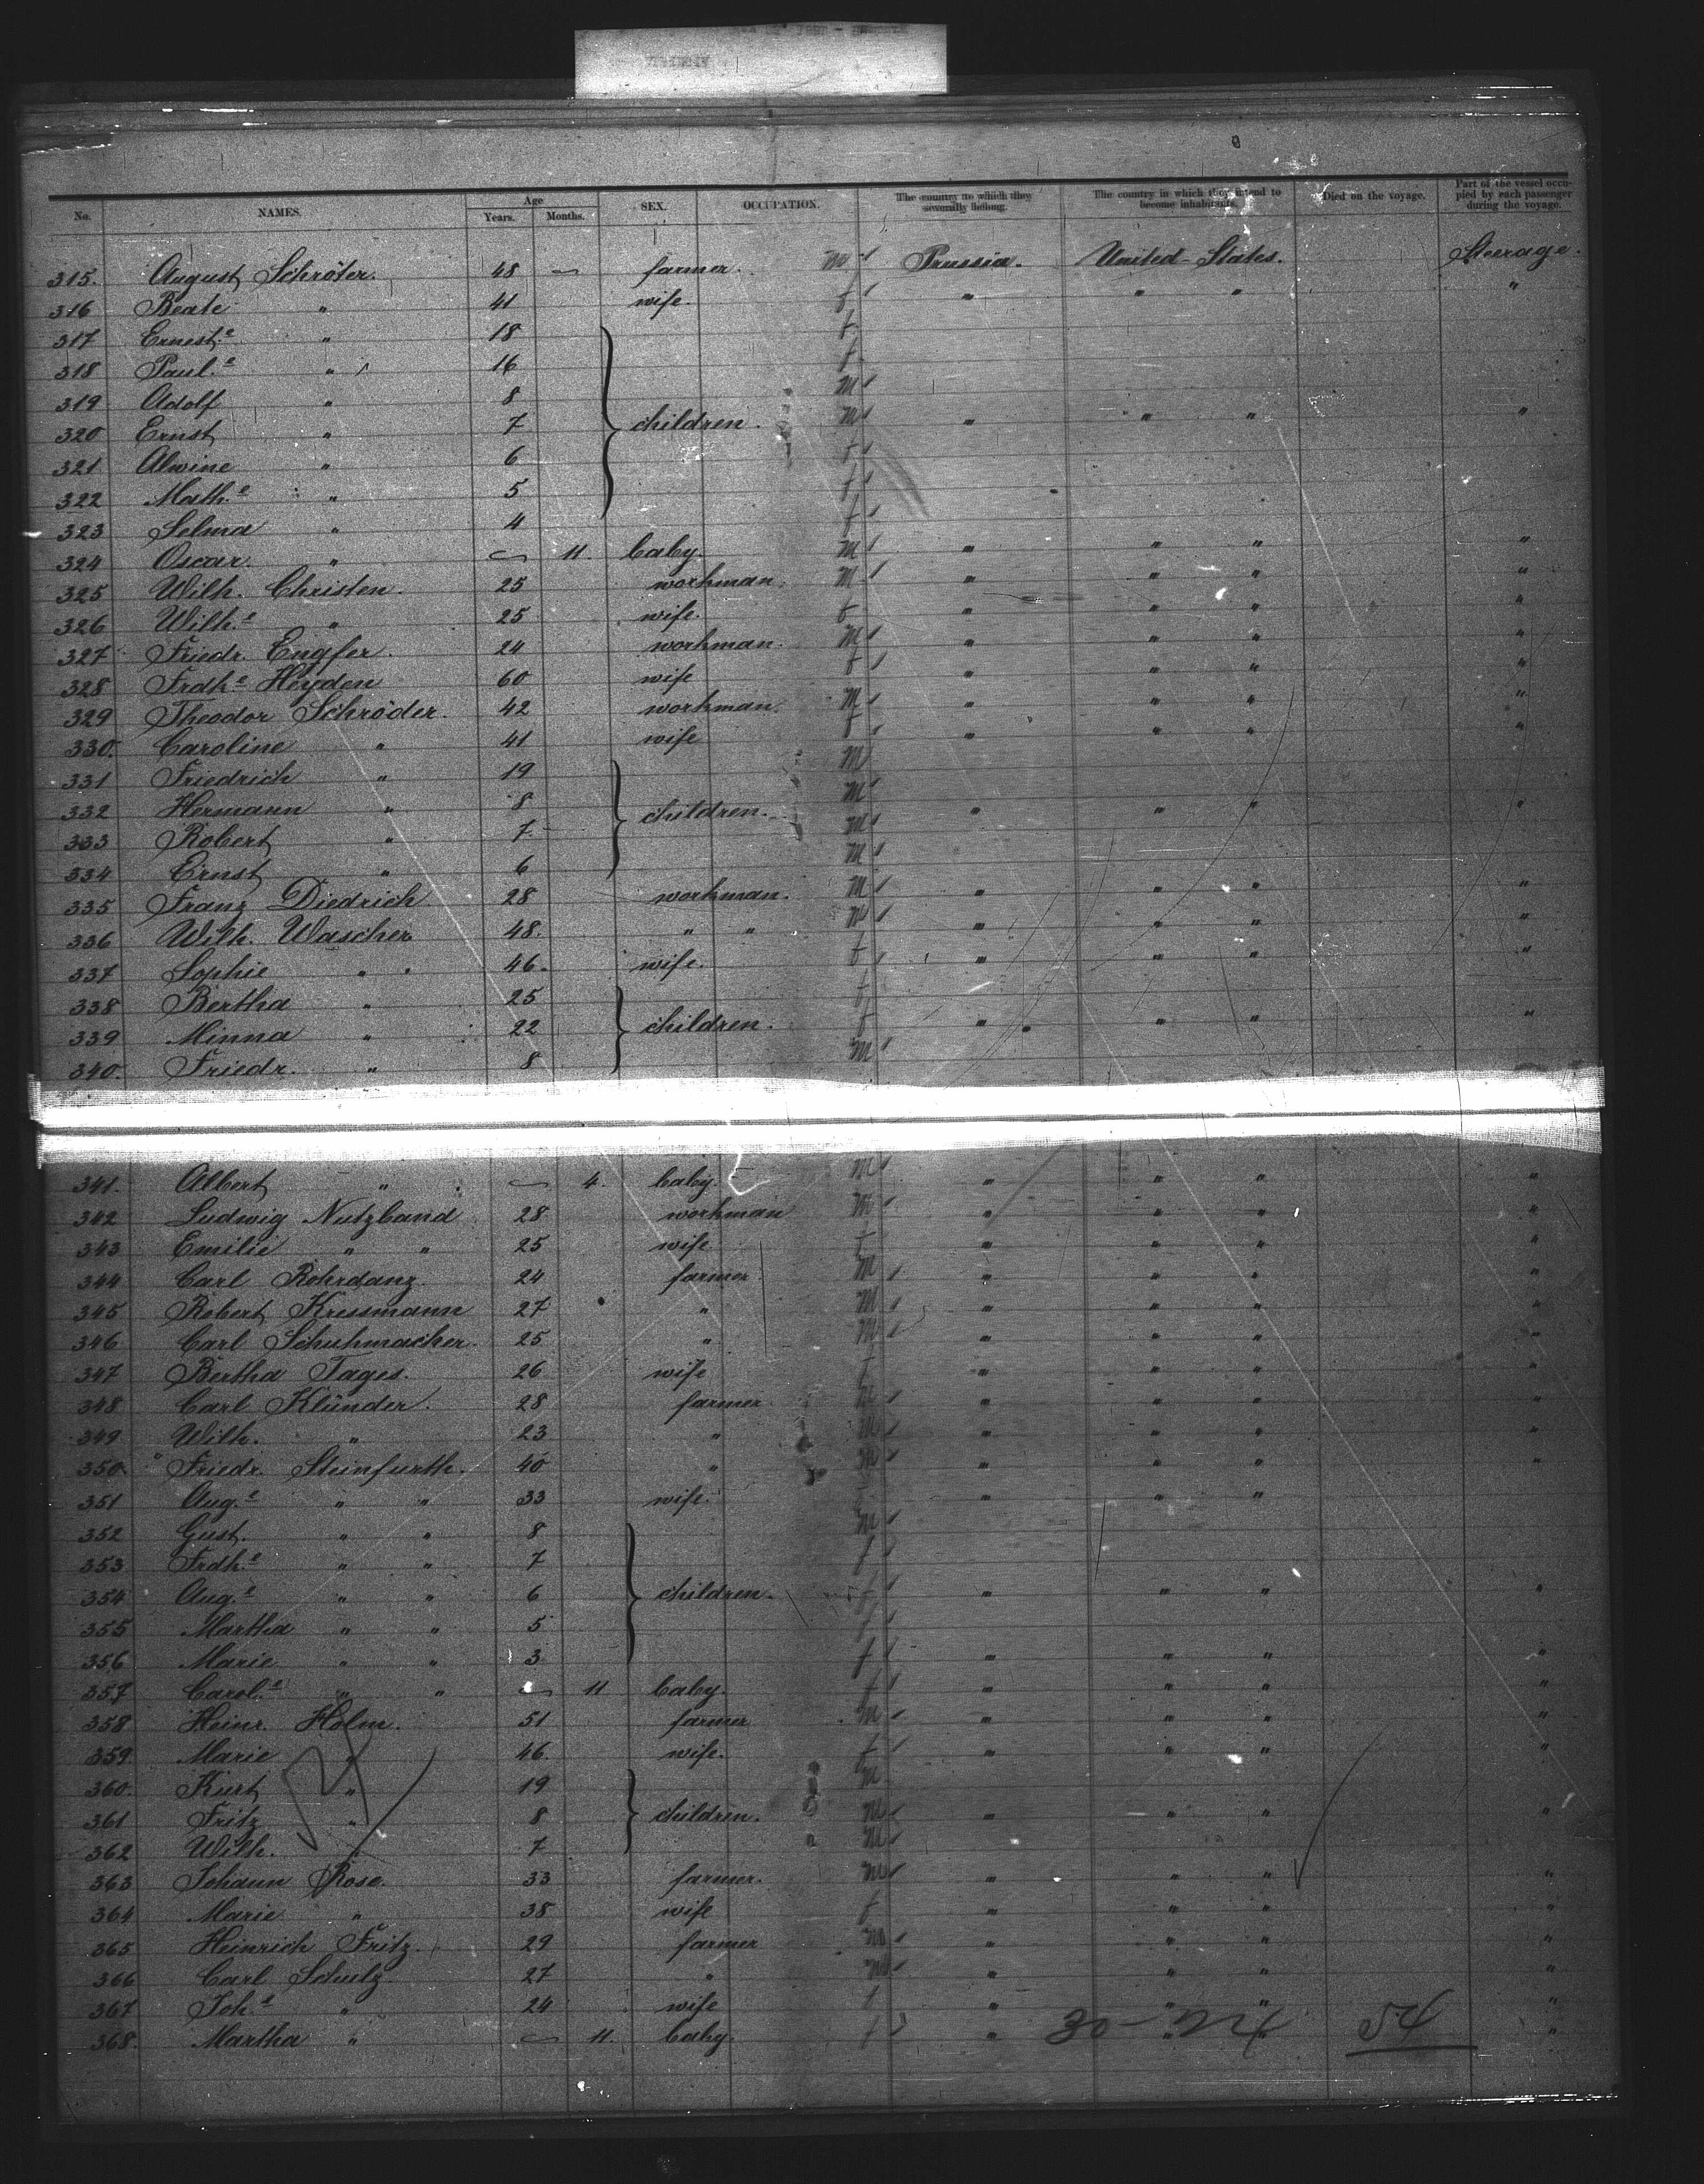 No. NAMES. Age Years. Months. SEX. OCCUPATION. The country to which they severally belong. The country in which they intend to become inhabitants. Died on the voyage. Part of the vessel occupied by each passenger during the voyage.
315. August Schröter. 48 — farmer. M Prussia. United States. Steerage.
316 Beate " 41 wife. f " " " "
317 Ernest.e " 18 f
318 Paul.e " 16 f
319 Adolf " 8 M
320 Ernst " 7 children. M " " " "
321 Alwine " 6 f
322 Math.e " 5 f
323 Selma " 4 f
324 Oscar. " — 11. baby. M " " " "
325 Wilh. Christen. 25 workman. M " " " "
326 Wilh.e " 25 wife. f " " " "
327 Friedr. Engfer. 24 workman. M " " " "
328 Frdke Heyden 60 wife f " " " "
329 Theodor Schröder. 42 workman. M " " " "
330. Caroline " 41 wife f " " " "
331 Friedrich " 19 M
332 Hermann " 8 children. M " " " "
333 Robert " 7 M
334 Ernst " 6 M
335 Franz Diedrich 28 workman. M " " " "
336 Wilh. Wascher 48. " " M " " " "
337 Sophie " " 46. wife. f " " " "
338 Bertha " 25 f
339 Minna " 22 children. f " " " "
340. Friedr. " 8 M
341. Albert " — 4. baby. M " " " "
342 Ludwig Nutzband 28 workman M " " " "
343 Emilie " " 25 wife f " " " "
344 Carl Rohrdanz. 24 farmer. M " " " "
345 Robert Kressmann 27 " M " " " "
346 Carl Schuhmacher. 25 " M " " " "
347 Bertha Tages. 26 wife f " " " "
348 Carl Klünder. 28 farmer M " " " "
349 Wilh. " 23 " M " " " "
350. Friedr. Steinfurth. 40 " M " " " "
351 Aug.e " " 33 wife. " " "
352 Gust. " " 8 M
353 Frdk.e " " 7 f
354 Aug.e " " 6 children. f " " " "
355 Martha " " 5 f
356 Marie " " 3 f " " " "
357 Carol.e " " — 11 baby. f " " " "
358 Heinr. Holm. 51 farmer M " " " "
359. Marie " 46. wife. f " " " "
360. Kurt " 19 M
361 Fritz " 8 children. M " " " "
362 Wilh. " 7 M
363 Johann Rose. 33 farmer. M " " " "
364 Marie " 38 wife f " " " "
365 Heinrich Fritz. 29 farmer M " " " "
366 Carl Schulz 27 " M " " " "
367 Joh.e " 24 wife f " " " "
368. Martha " — 11. baby. f " " " "
30 - 24 54